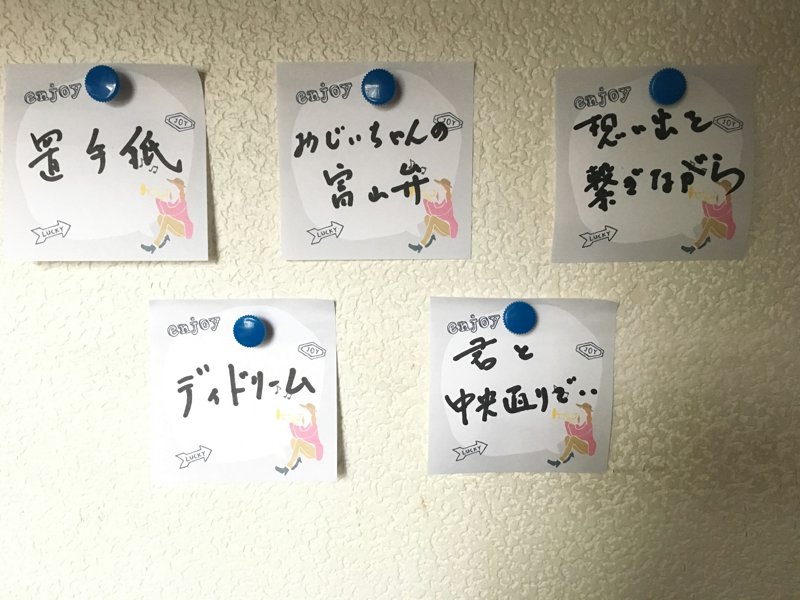 enjoy
JOY
置手紙
LUCKY
enjoy
JOY
おじいちゃんの
富山弁
LUCKY
enjoy
JOY
想い出を
繋ぎながら
LUCKY
enjoy
JOY
デイドリーム
LUCKY
enjoy
JOY
君と
中央通りで‥
LUCKY